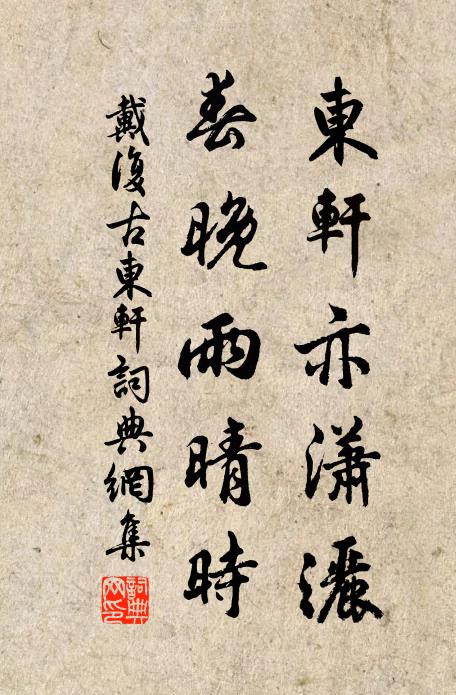 東軒亦瀟灑
春晚雨晴時
戴復古東軒詞典網集
詞典